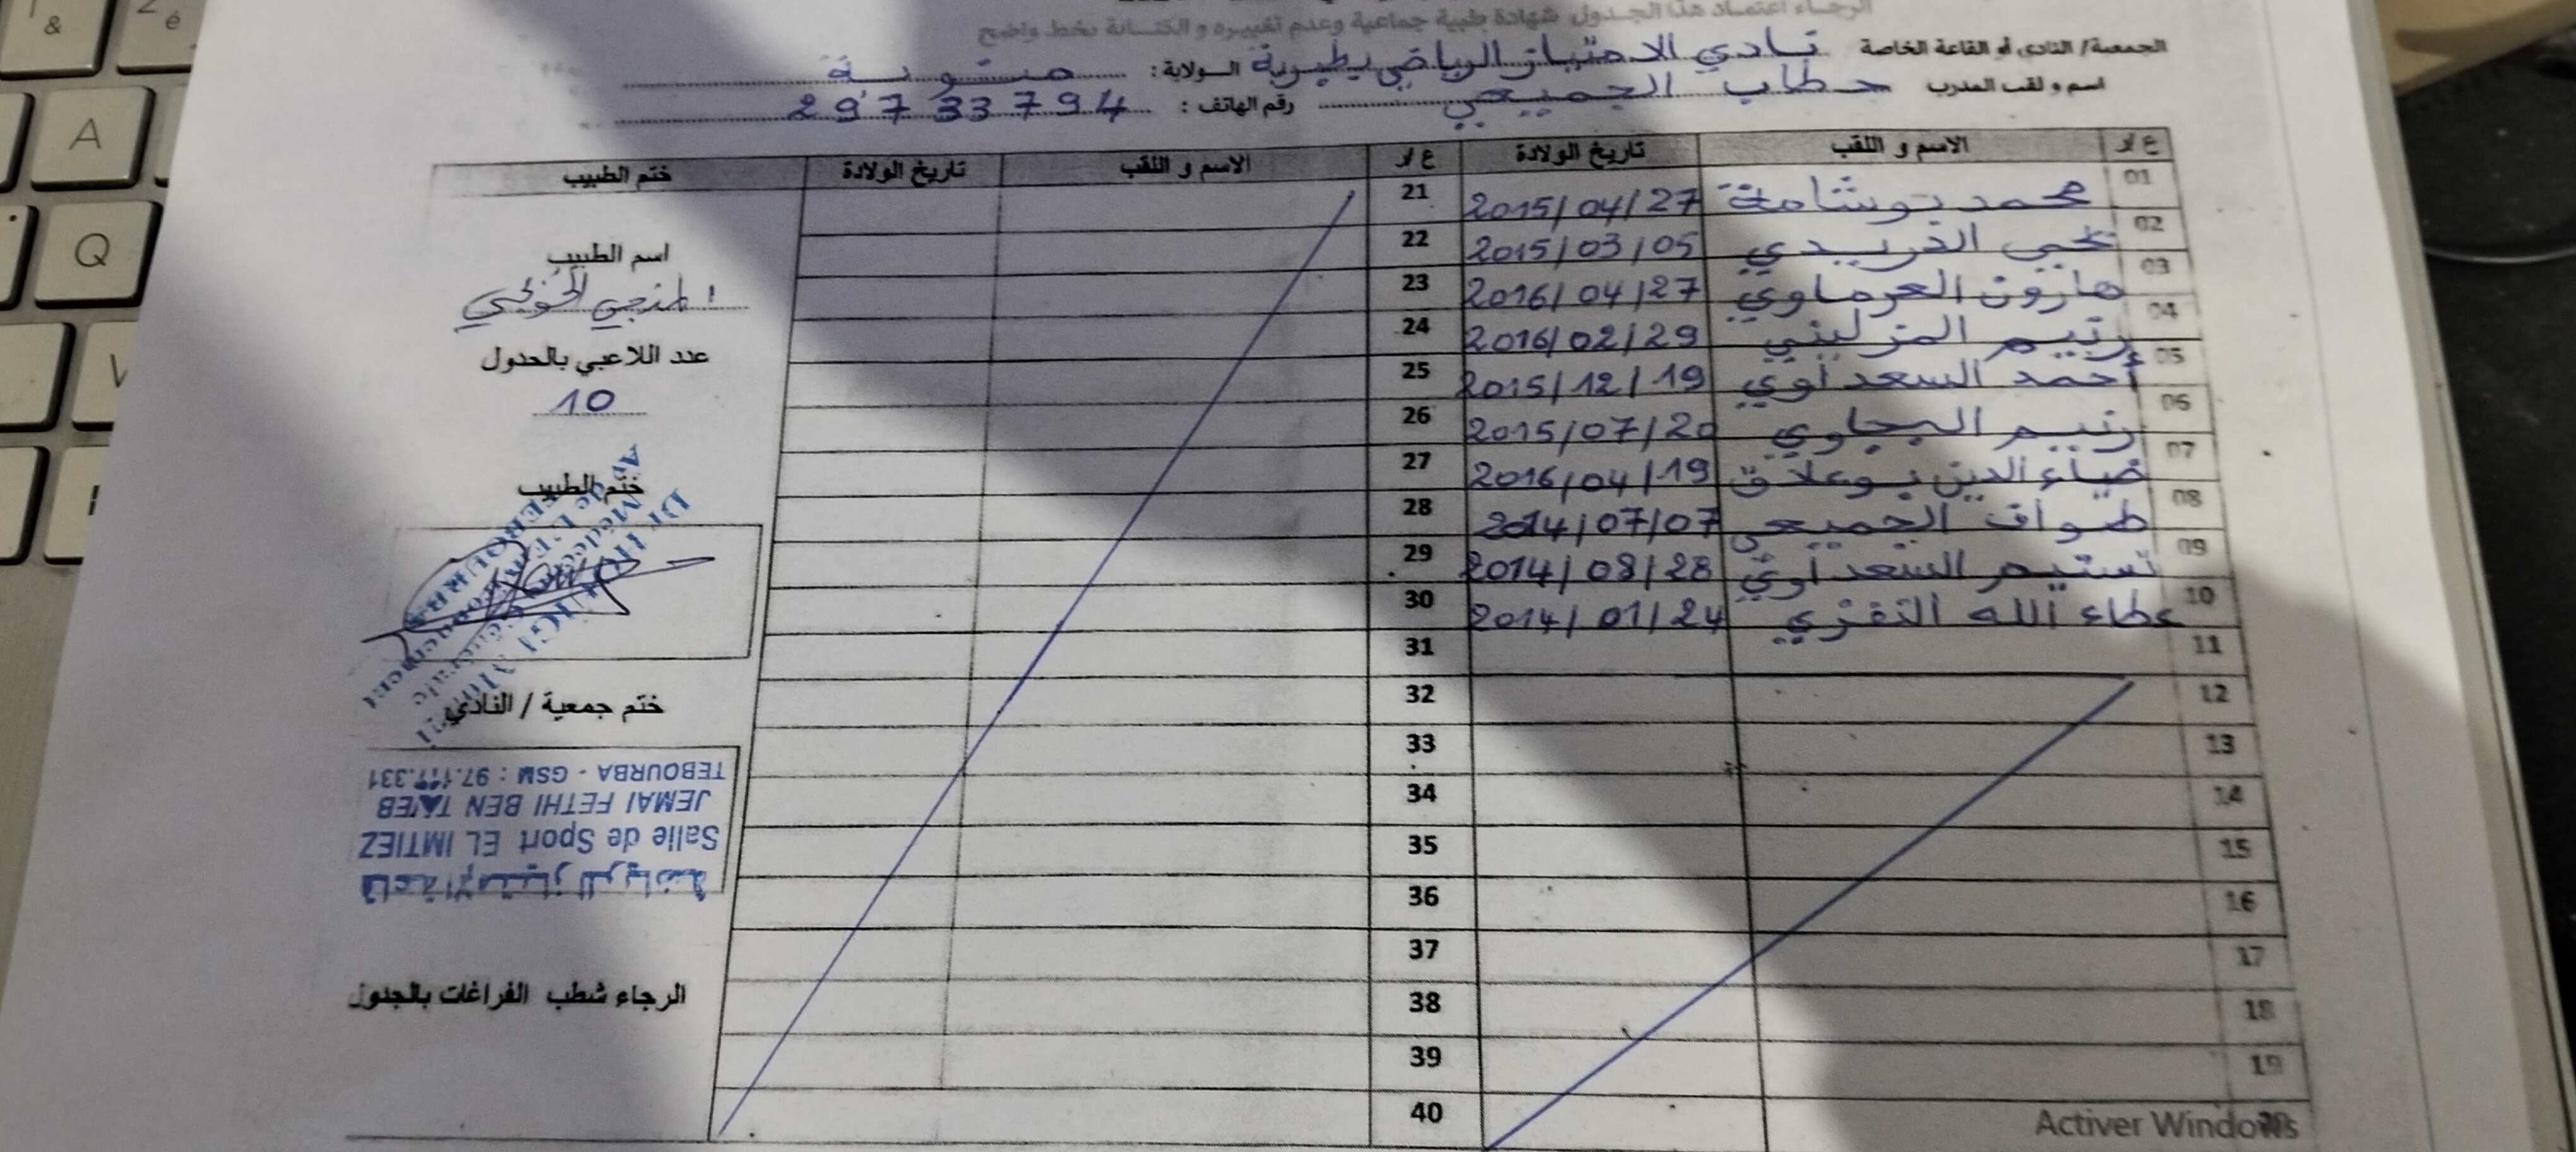 الرجاء اعتماد هذا الجدول شهادة طبية جماعية وعدم تغييره و الكتابة بخط واضح
الجمعية/ النادي أو القاعة الخاصة نادي الامتياز الرياضي بطبربة الولاية: منوبة
اسم و لقب المدرب حطاب الجميعي رقم الهاتف: 29733794
ع/ر الاسم و اللقب تاريخ الولادة ع/ر الاسم و اللقب تاريخ الولادة ختم الطبيب
01 محمد بوشامة 2015/04/27 21
02 يحي الفريدي 2015/03/05 22
03 هارون العرماوي 2016/04/27 23
04 رتيم 2016/02/29 24
05 أحمد السعداوي 2015/12/19 25
06 رنيم البجاوي 2015/07/20 26
07 ضياء الدين بوعلاق 2016/04/19 27
08 طواف الجميعي 2014/07/07 28
09 تسنيم السعداوي 2014/08/28 29
10 عطاء الله النفزي 2014/01/24 30
11 31
12 32
13 33
14 34
15 35
16 36
17 37
18 38
19 39
20 40
اسم الطبيب
المنجي
عدد اللاعبي بالجدول
10
ختم الطبيب
Dr
Médecine Générale
TEBOURBA
ختم جمعية / النادي
قاعة الإمتياز للرياضة
Salle de Sport EL IMTIEZ
JEMAI FETHI BEN TAIEB
TEBOURBA - GSM : 97.331
الرجاء شطب الفراغات بالجدول
Activer Windows